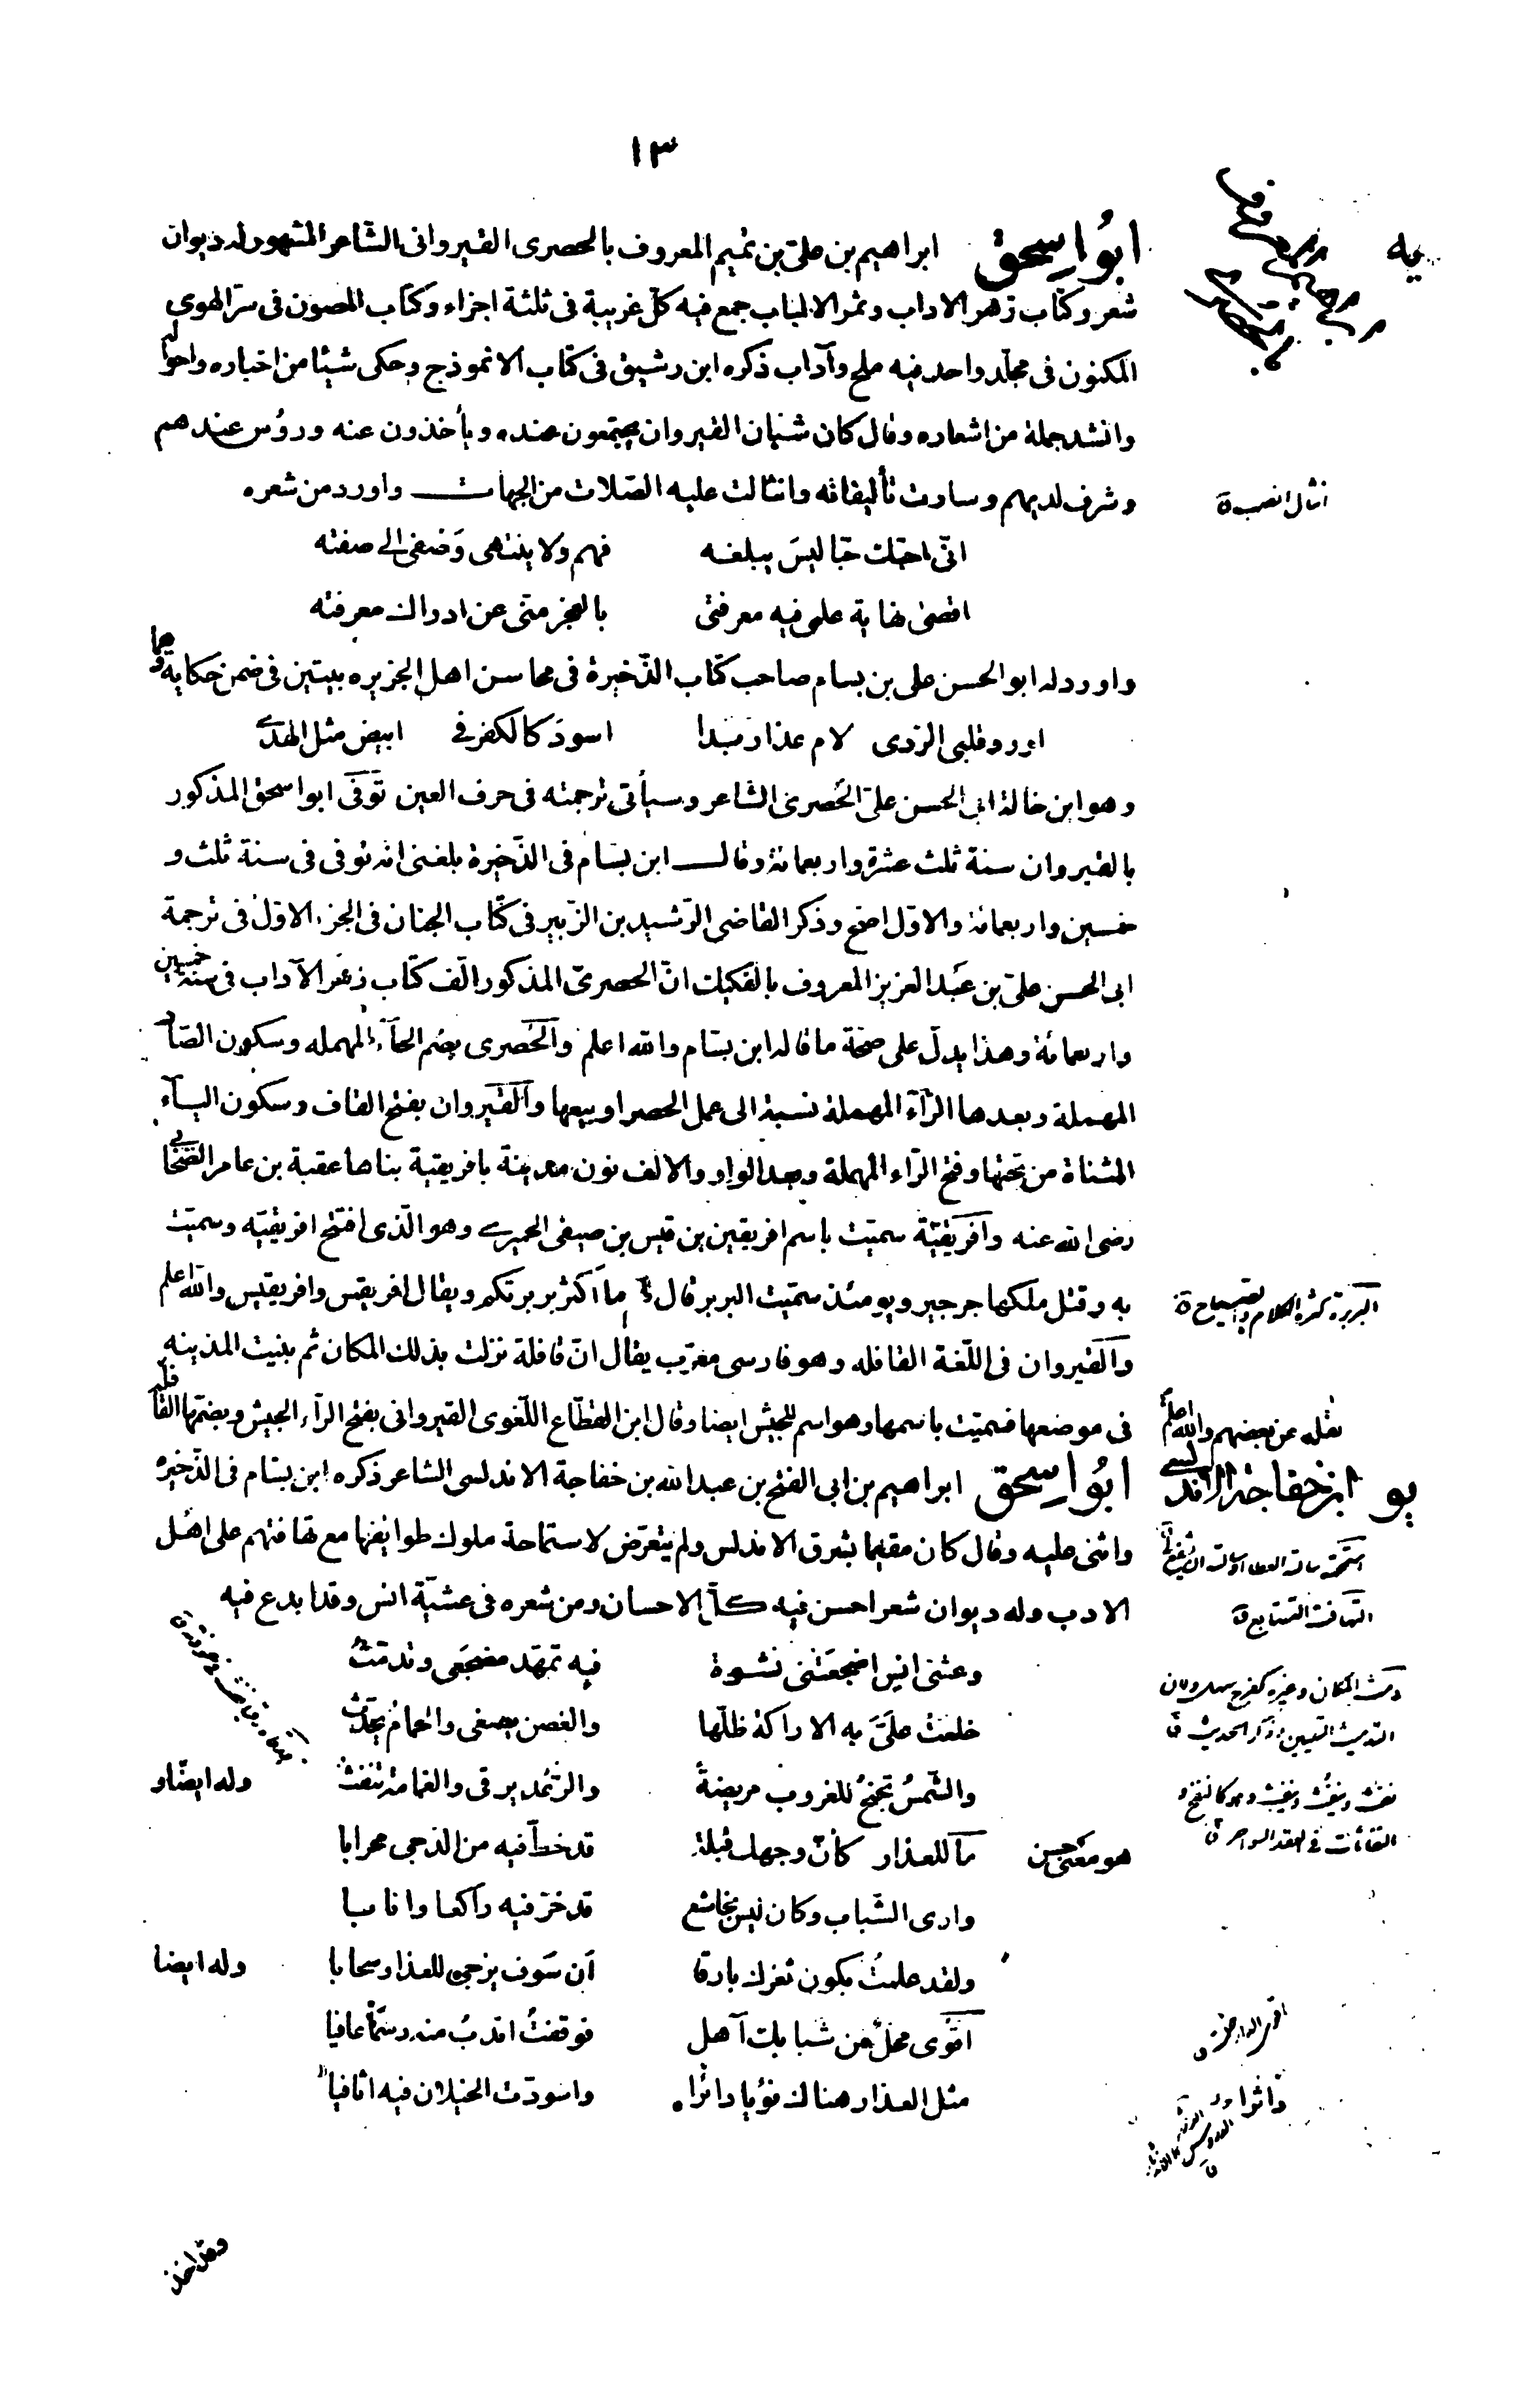 ١٣
ابُو اسحق ابراهيم بن علىّ بن تميم المعروف بالحصرى القيروانى الشّاعر المشهور له ديوان
شعر وكتاب زهر الاداب وثمر الالباب جمع فيه كلّ غريبة فى ثلثة اجزاء وكتاب المصون فى سرّ الهوى
المكنون فى مجلّد واحد فيه ملح وآداب ذكره ابن رشيق فى كتاب الانموذج وحكى شيئا من اخباره واحواله
وانشد جملة من اشعاره وقال كان شبان القيروان يجتمعون عنده ويأخذون عنه ورؤس عندهم
وشرف لديهم وسارت تأليفاته وانثالت عليه الصّلات من الجهات واورد من شعره
انثال انصب ة
انّى احبّك حبّا ليسَ يبلغه فهم ولا ينتهى وَصْفى الى صفته
اقصىٰ نهاية علمى فيه معرفتى بالعجز منّى عن ادراك معرفته
واورد له ابو الحسن على بن بسام صاحب كتاب الذّخيرة فى محاسن اهل الجزيره بيتين فى ضمن حكاية وهما
اورد قلبى الردى لام عذار بَدا اسودَ كالكفر فى ابيض مثل الهدى
وهو ابن خالة ابى الحسن علىّ الحُصرى الشاعر وسيأتى ترجمته فى حرف العين توفّى ابو اسحق المذكور
بالقيروان سنة ثلث عشرة واربعمائة وقال ابن بسّام فى الذّخيرة بلغنى انه توفى فى سنة ثلث و
خمسين واربعمائة والاوّل اصحّ وذكر القاضى الرّشيد بن الزّبير فى كتاب الجنان فى الجزء الاوّل فى ترجمة
ابى الحسن علىّ بن عَبد العزيز المعروف بالفكيك انّ الحصرىّ المذكور الّف كتاب زهر الآداب فى سنة خمسين
واربعمائة وهذا يدلّ على صحّة ما قاله ابن بسّام والله اعلم والحُصرى بضم الحآء المهمله وسكون الصّاد
المهملة وبعدها الرّآء المهملة نسبة الى عمل الحصر او بيعها والقَيروان بفتح القاف وسكون اليآء
المثناة من تحتها وفتح الرّاء المهملة وبعد الواو والالف نون مدينة بافريقية بناها عقبة بن عامر الصّحابى
رضى الله عنه وافريقيّة سمّيت باسم افريقين بن قيس بن صيفى الحميرى وهو الّذى افتتح افريقيّه وسمّيت
به وقتل ملكها جرجير ويومئذ سمّيت البربر قال لهم ما اكثر بربرتكم ويقال افريقس وافريقيس والله اعلم
البربرة كثرة الكلام والصياح ة
والقيروان فى اللّغة القافله وهو فارسى معرّب يقال انّ قافلة نزلت بذلك المكان ثم بنيت المدينه
فى موضعها فسمّيت باسمها وهو اسم للجيش ايضا وقال ابن القطّاع اللّغوى القيروانى بفتح الرآء الجيش وبضمّها القافله
نقله عن بعضهم والله اعلم
يو ابن خفاجة الاندلسى ابُو اسحق ابراهيم بن ابى الفتح بن عبد الله بن خفاجة الاندلسى الشاعر ذكره ابن بسّام فى الذّخيره
واثنى عليه وقال كان مقيما بشرق الاندلس ولم يتعرّض لاستماحة ملوك طوايفها مع تهافتهم على اهل
الادب وله ديوان شعر احسن فيه كلّ الاحسان ومن شعره فى عشيّة انس وقد ابدع فيه
التهافت التتابع ة
وعشىّ انس اضجعَتْنى نشوة فيه تمهّد مضجَعى وتدمّثُ
خلعتْ علَىَّ به الاراكة ظلّها والغصن يصغى والحمامُ يحدّث
والشّمسُ تجنحُ للغروب مريضةً والرّعْد يرقى والغمامة تنفثُ وله ايضًا و
هو معنى حسن ما للعذار كانّ وجهك قبلة قد خطّ فيه من الدجى محرابا
وارى الشّباب وكان ليس بخاشع قد خرّ فيه راكعا وانابا
ولقد علمتُ بكون ثغرك بارقا اَن سَوف يزجى للعذار سحابا وله ايضا
اقوى محلّ من شبابك آهل فوقفتُ اندبُ منه رسمًا عافيا
مثل العذار هناك نؤيا داثرا واسودّت الخيلان فيه اثافيا
وقد اخذ